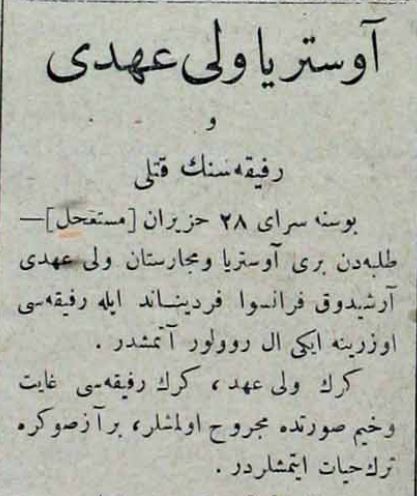 آوستریا ولی عهدی
و
رفیقه‌سنك قتلی
بوسنه سرای ٢٨ حزیران [مستعجل] —
طلبه‌دن بری آوستریا ومجارستان ولی عهدی
آرشیدوق فرانسوا فردیناند ایله رفیقه‌سی
اوزرینه ایكی ال روولور آتمشدر .
كرك ولی عهد ، كرك رفیقه‌سی غایت
وخیم صورتده مجروح اولمشلر ، بر آز صوكره
ترك حیات ایتمشلردر .